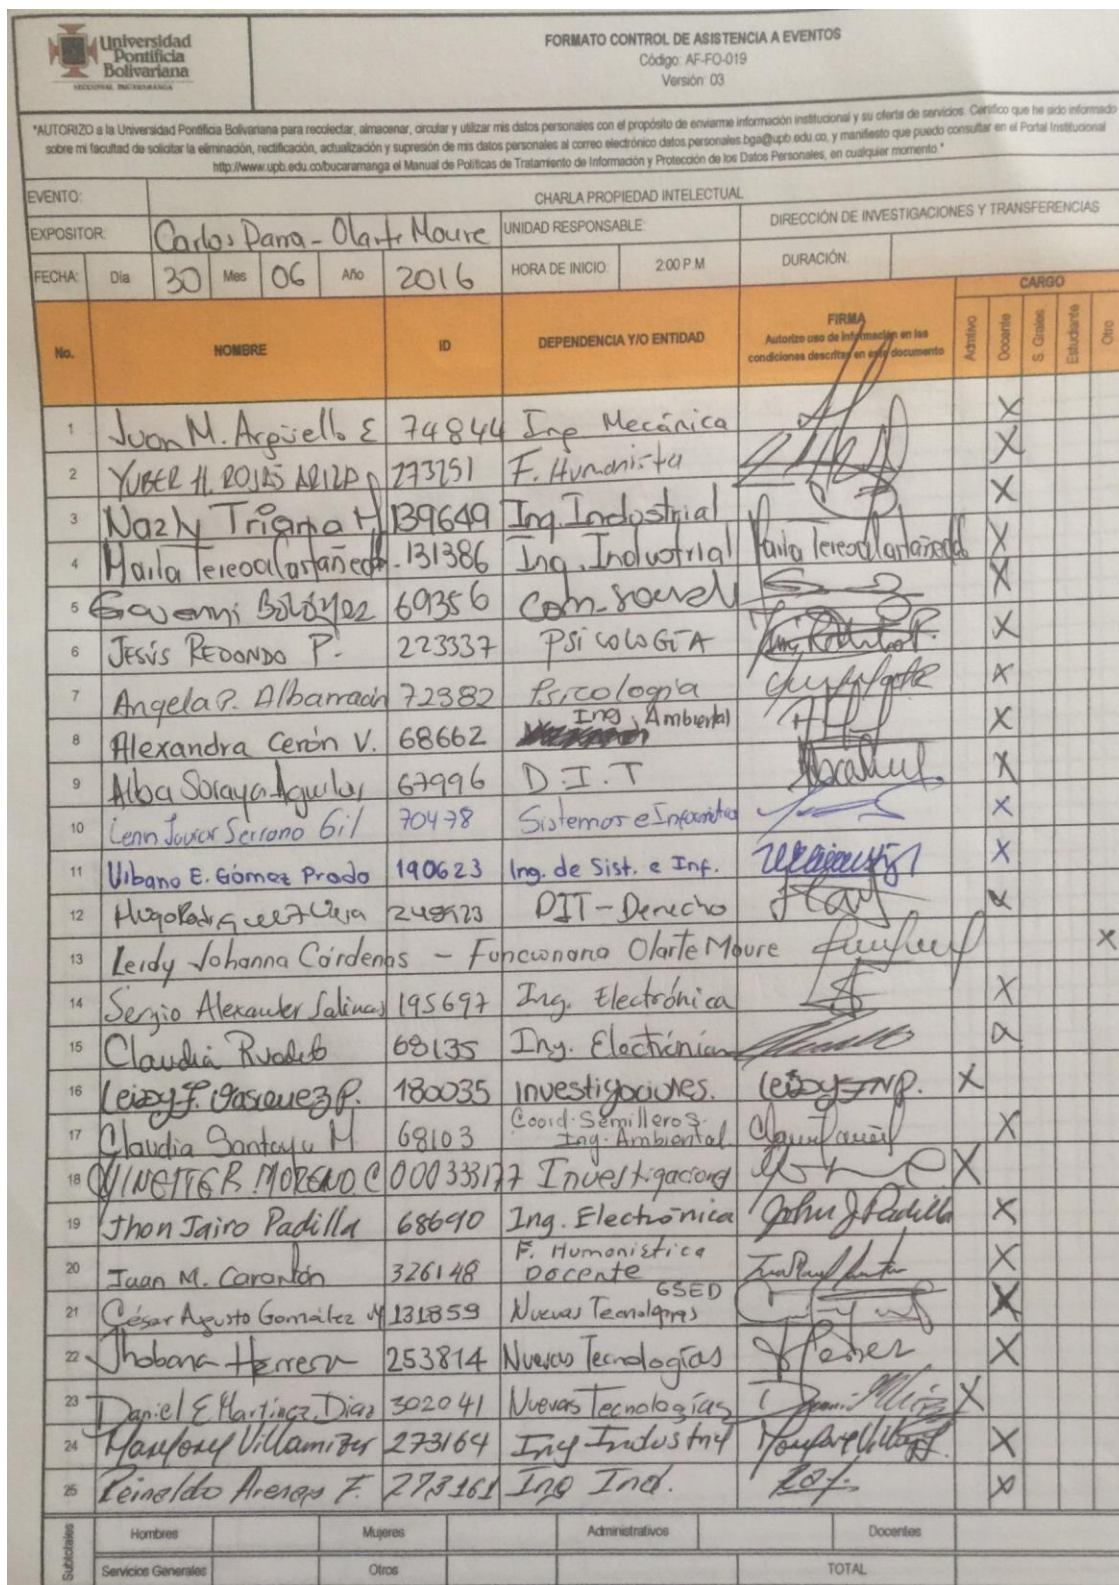 Universidad
Pontificia
Bolivariana
SECCIONAL BUCARAMANGA
FORMATO CONTROL DE ASISTENCIA A EVENTOS
Código: AF-FO-019
Versión: 03
"AUTORIZO a la Universidad Pontificia Bolivariana para recolectar, almacenar, circular y utilizar mis datos personales con el propósito de enviarme información institucional y su oferta de servicios. Certifico que he sido informado
sobre mi facultad de solicitar la eliminación, rectificación, actualización y supresión de mis datos personales al correo electrónico datos.personales.bga@upb.edu.co, y manifiesto que puedo consultar en el Portal Institucional
http://www.upb.edu.co/bucaramanga el Manual de Políticas de Tratamiento de Información y Protección de los Datos Personales, en cualquier momento."
EVENTO: CHARLA PROPIEDAD INTELECTUAL
EXPOSITOR: Carlos Parra - Olarte Moure UNIDAD RESPONSABLE: DIRECCIÓN DE INVESTIGACIONES Y TRANSFERENCIAS
FECHA: Día 30 Mes 06 Año 2016 HORA DE INICIO: 2:00 P.M DURACIÓN:
CARGO
No. NOMBRE ID DEPENDENCIA Y/O ENTIDAD FIRMA Autorizo uso de información en las condiciones descritas en este documento Admtivo Docente S. Grales Estudiante Otro
1 Juan M. Argüello E 74844 Ing Mecánica X
2 YUBER H. ROJAS ARIZA 273251 F. Humanista X
3 Nazly Triana H 139649 Ing. Industrial X
4 Maria Teresa Castañeda 131386 Ing. Industrial Maria Teresa Castañeda X
5 Giovanni Bohórquez 69356 Com-social X
6 JESÚS REDONDO P. 223337 PSICOLOGÍA X
7 Angela P. Albarracín 72382 Psicología X
8 Alexandra Cerón V. 68662 Ing. Ambiental X
9 Alba Soraya Aguilar 67996 D.I.T X
10 Lenin Javier Serrano Gil 70478 Sistemas e Informática X
11 Urbano E. Gómez Prado 190623 Ing. de Sist. e Inf. X
12 Hugo Vera DIT - Derecho X
13 Leidy Johanna Cárdenas - Funcionaria Olarte Moure X
14 Sergio Alexander Salinas 195697 Ing. Electrónica X
15 Claudia Rueda 68135 Ing. Electrónica
16 Leidy F. Vasquez P. 180035 Investigaciones. X
17 Claudia Santoyo M 68103 Coord. Semilleros. Ing. Ambiental. X
18 MORENO C 000333177 Investigaciones X
19 Jhon Jairo Padilla 68690 Ing. Electrónica John J Padilla X
20 Juan M. Carantón 326148 F. Humanística Docente X
21 César Agusto González M 131859 Nuevas Tecnologías GSED X
22 Jhobana Herrera 253814 Nuevas Tecnologías X
23 Daniel E Martinez Diaz 302041 Nuevas Tecnologías X
24 Villamizar 273164 Ing Industrial X
25 Reinaldo Arenas F. 273161 Ing Ind. X
Subtotales Hombres Mujeres Administrativos Docentes
Servicios Generales Otros TOTAL